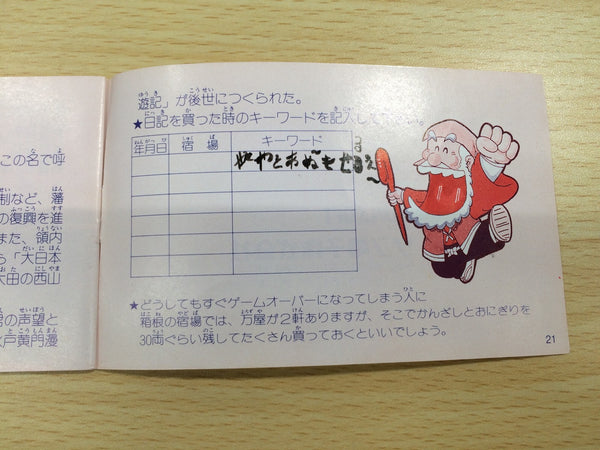 この名で呼
制など、藩
の復興を進
また、領内
ら「大日本
太田の西山
君の声望と
水戸黄門漫
遊記」が後世につくられた。
★日記を買った時のキーワードを記入して
年月日 宿場 キーワード
★どうしてもすぐゲームオーバーになってしまう人に
箱根の宿場では、万屋が2軒ありますが、そこでかんざしとおにぎりを
30両ぐらい残してたくさん買っておくといいでしょう。
21